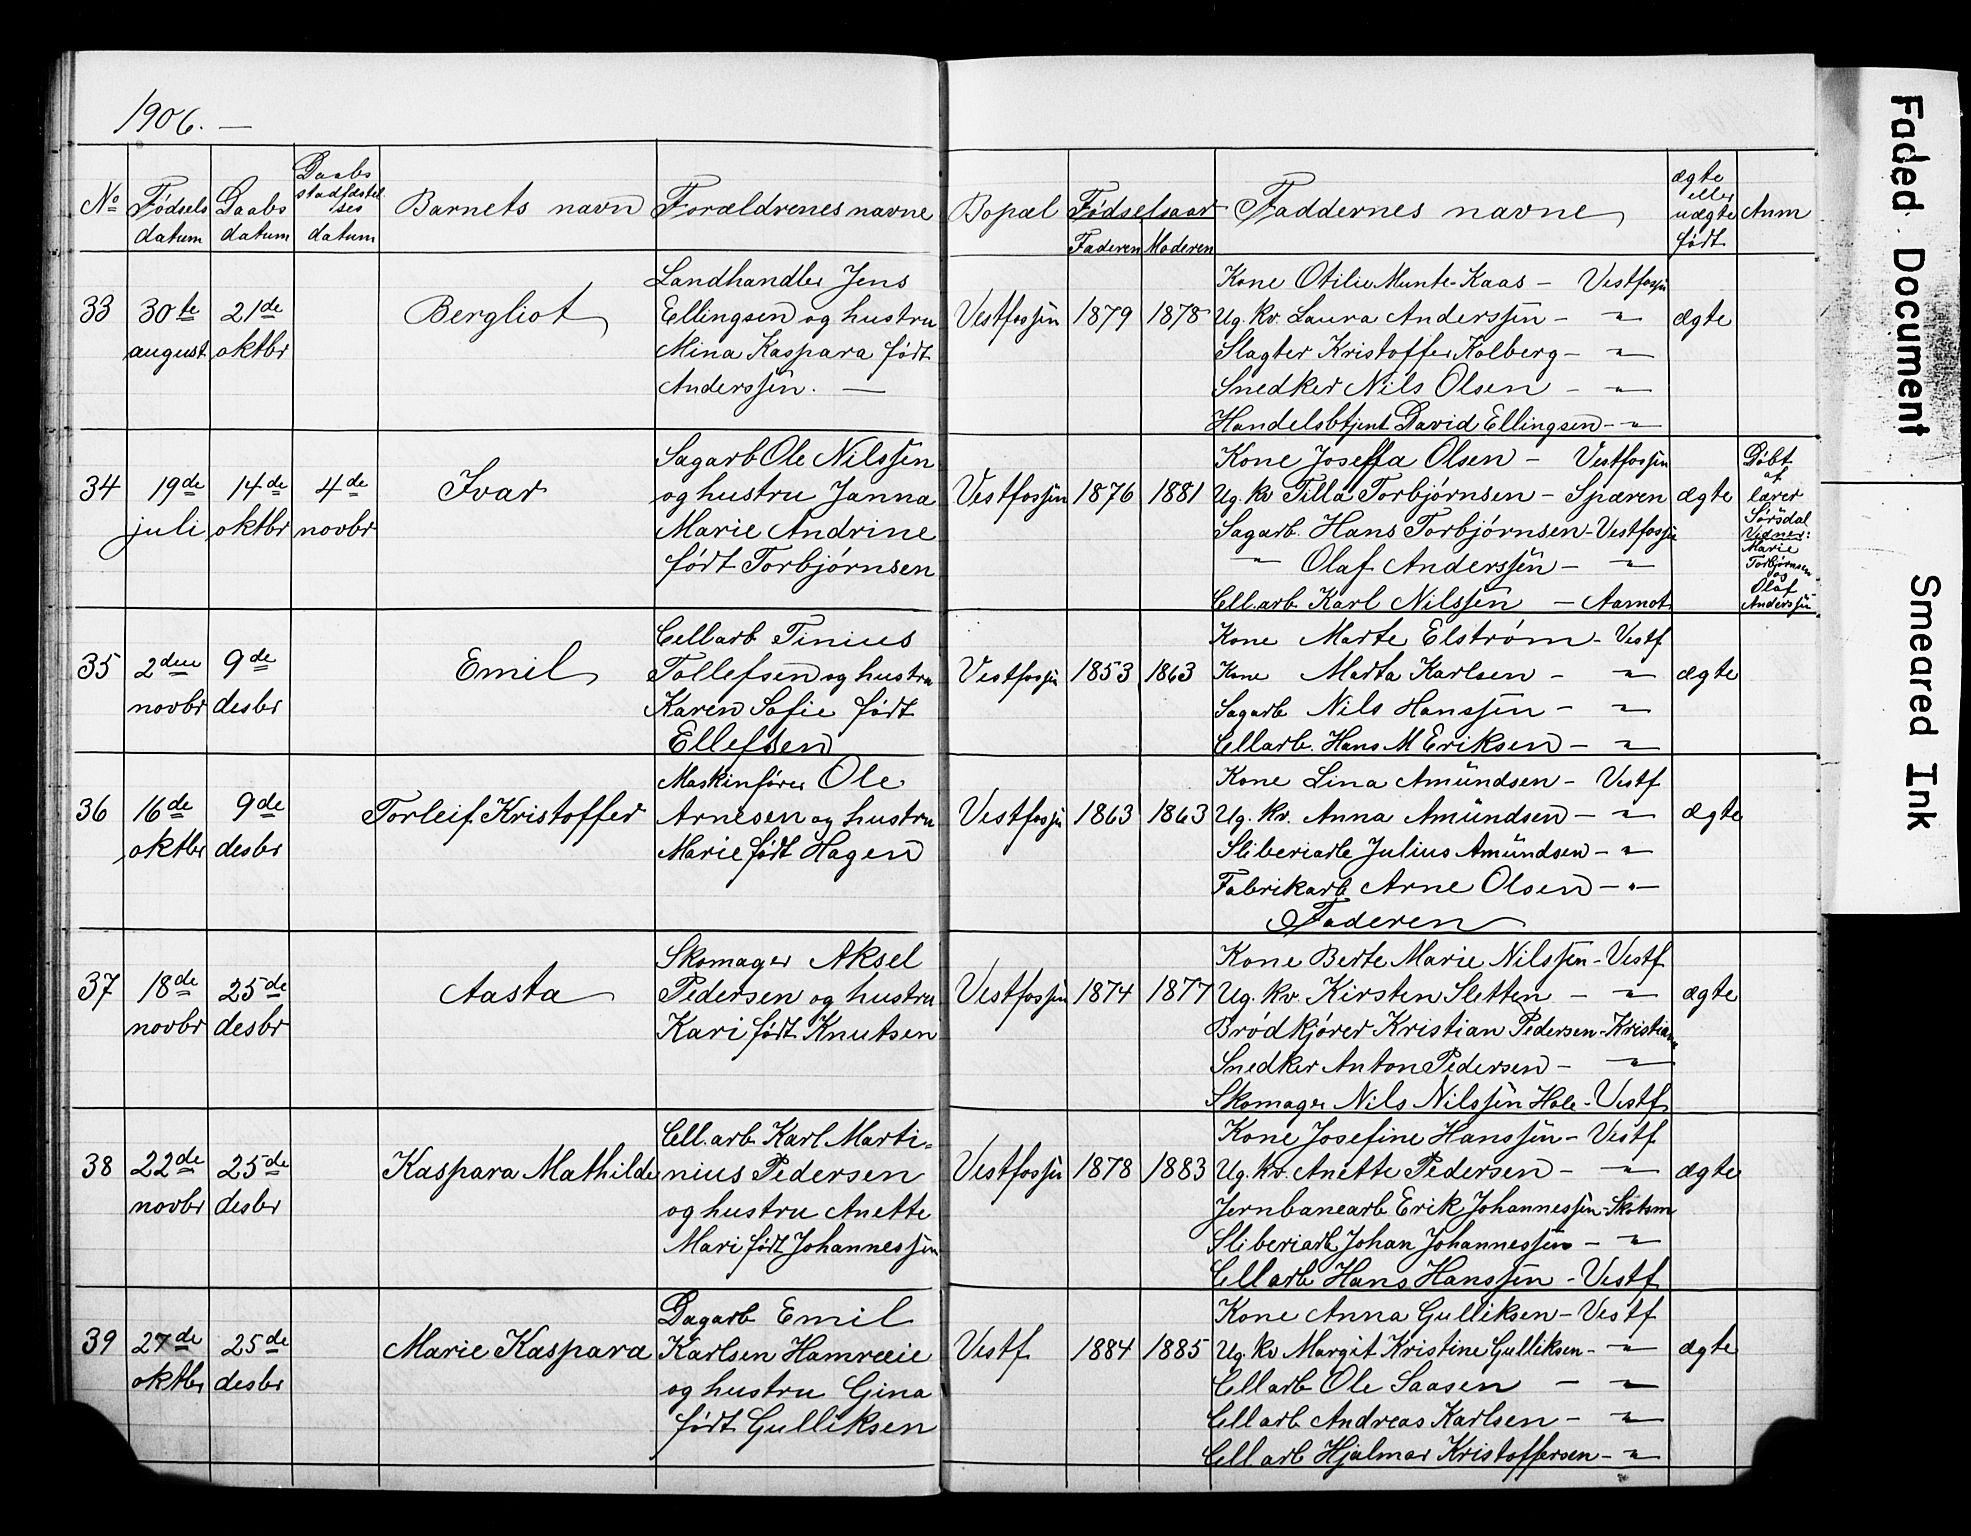 1906. —
No Fødsels datum Daabs datum Daabs stadfæstel ses datum Barnets navn Forældrenes navne Bopæl Fødselsaar Faderen Moderen Faddernes navne ægte eller uægte født Anm
33 30te august 21de oktbr Bergliot
Landhandler Jens
Ellingsen og hustru
Mina Kaspara født
Anderssen. —
Vestfossen 1879 1878
Kone Otilie Munte-Kaas — Vestfossen
Ug. kv. Laura Anderssen — "
Slagter Kristoffer Kolberg — "
Snedker Nils Olsen — "
Handelsbtjent David Ellingsen — "
ægte
34 19de juli 14de oktbr 4de novbr Ivar
Sagarb Ole Nilssen
og hustru Janna
Marie Andrine
født Torbjørnsen
Vestfossen 1876 1881
Kone Joseffa Olsen — Vestfossen
Ug. kv Tilla Torbjørnsen — Spæren
Sagarb. Hans Torbjørnsen - Vestfossen
" Olaf Anderssen — "
Cell.arb Karl Nilssen — Aamot
ægte
Døbt
af
lærer
Sørsdal
Vidner:
Marie
Torbjørnsen
og
Olaf
Anderssen
35 2den novbr 9de desbr Emil
Cellarb Tinius
Tollefsen og hustru
Karen Sofie født
Ellefsen
Vestfossen 1853 1863
Kone Marte Elstrøm - Vestf
Kone Marta Karlsen — "
Sagarb Nils Hanssen — "
Cellarb. Hans M Eriksen — "
ægte
36 16de oktbr 9de desbr Torleif Kristoffer
Maskinfører Ole
Arnesen og hustru
Marie født Hagen
Vestfossen 1863 1863
Kone Lina Amundsen — Vestf
Ug. kv. Anna Amundsen — "
Sliberiarb Julius Amundsen — "
Fabrikarb Arne Olsen — "
Faderen
ægte
37 18de novbr 25de desbr Aasta
Skomager Aksel
Pedersen og hustru
Kari født Knutsen
Vestfossen 1874 1877
Kone Berte Marie Nilssen - Vestf
Ug. kv. Kirsten Sletten — "
Brødkjører Kristian Pedersen - Kristiania
Snedker Anton Pedersen — "
Skomager Nils Nilssen Hole - Vestf
ægte
38 22de novbr 25de desbr Kaspara Mathilde
Cell.arb Karl Marti=
nius Pedersen
og hustru Anette
Mari født Johannessen
Vestfossen 1878 1883
Kone Josefine Hanssen - Vestf
Ug. kv. Anette Pedersen — "
Jernbanearb Erik Johannessen - Skotsm
Sliberiarb Johan Johannessen — "
Cellarb Hans Hanssen - Vestf
ægte
39 27de oktbr 25de desbr Marie Kaspara
Dagarb Emil
Karlsen Hamreeie
og hustru Gina
født Gulliksen
Vestf 1884 1885
Kone Anna Gulliksen - Vestf
Ug. kv Margit Kristine Gulliksen - "
Cellarb Ole Saasen — "
Cellarb Andreas Karlsen — "
Cell.arb Hjalmar Kristoffersen — "
ægte
Faded Document
Smeared Ink